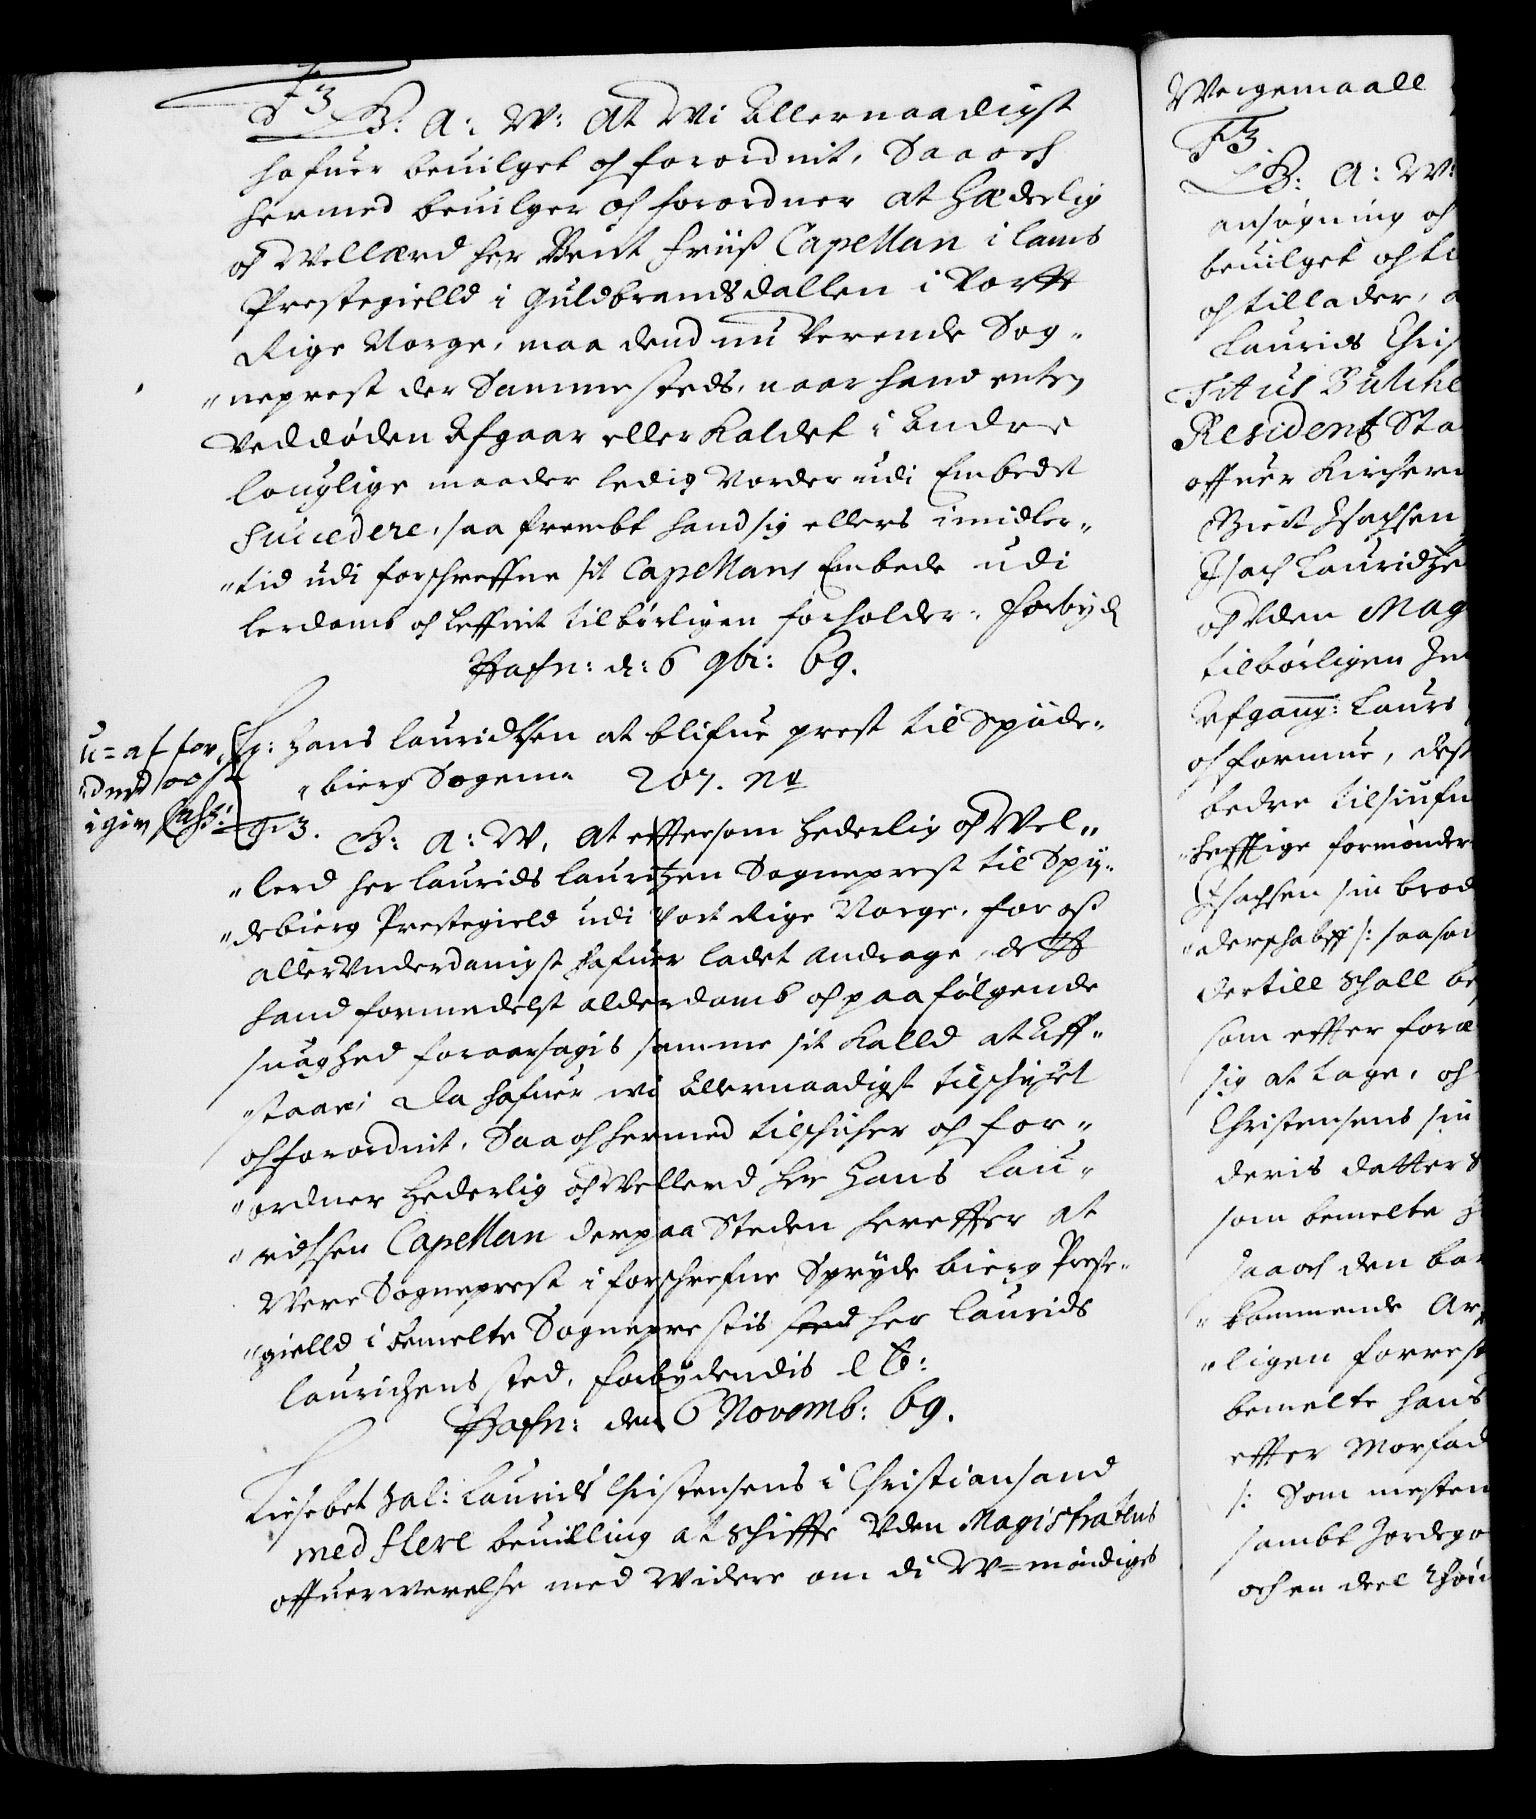 F3
B: A: W: At Wi Allernaadigst
hafuer beuilget och forordnit, Saa och
hermed beuilger och forordner at Hæderlig
och Wellærd her Bent Friiß Capellan i Lams
Prestegielld i Guldbrandsdallen i Vortt
Rige Norge, maa dend nu Verende Sog-
"neprest der Sammesteds, naar hand enten
Ved døden Afgaar eller Kaldet i Andre
louglige maader ledig Vorder udi Embedet
Succedere, saa frembt hand sig ellers imidler-
"tid udi forschreffne sit Capellans Embede udi
tilbørligen forholder. Forbyd
Hafn: d: 6 9br: 69.
Hr: Hans Lauridtsen at blifue prest til Spüde-
"bierg Sogern 207. No
F3. B: A: W. At eftersom Hederlig och Wel-
"lerd her Laurids Lauritzen Sogneprest til Spy-
"debierg Prestegield udi Vort Rige Norge, for oß
allerVnderdanigst hafuer ladet Andrage, dett
hand formedelst alderdomb och paafølgende
suaghed foraarsagis samme sit Kalld at Aff-
"staae; Da hafuer wi Allernaadigst tilschicket
och forordnit, Saa och hermed tilschicher och for-
"ordner Hederlig och Wellerd her Hans Lau-
"ridsen Capellan der paa Steden hereffter at
Were Sogneprest i forschrefne Spydebierg Preste-
"gielld i bemelte Sogneprestis sted her Laurids
Lauritzens sted, Forbydendis etc:
Hafn: den 6 Novemb: 69.
Liesebet Sal: Laurids Christensens i Christiansand
med flere beuilling at schiffte Uden Magistratens
offuerwerelse med Widere om di W=møndiges
Wergemaall
F3.
B: A: W:
ansøgning och
beuilget och ti
och tillader, a
Laurids Chris
Titus Bülche
Resident Sta
offuer Kircher
Isachsen
Isach Lauridtze
och Uden Mag
tilbørligen
Afgang: Laurs
och formue, dest
bedre
formønder
Isachsen sin brod
"derschabff /: saasom
dertill Schall be
som effter foræ
sig at tage, och
Christensens sin
deris datter
som bemelte
Saa och den bar
"kommende Ar
"ligen forrest
bemelte hans
effter Morfad
/: Som mesten
sambt Jordego
och en deel